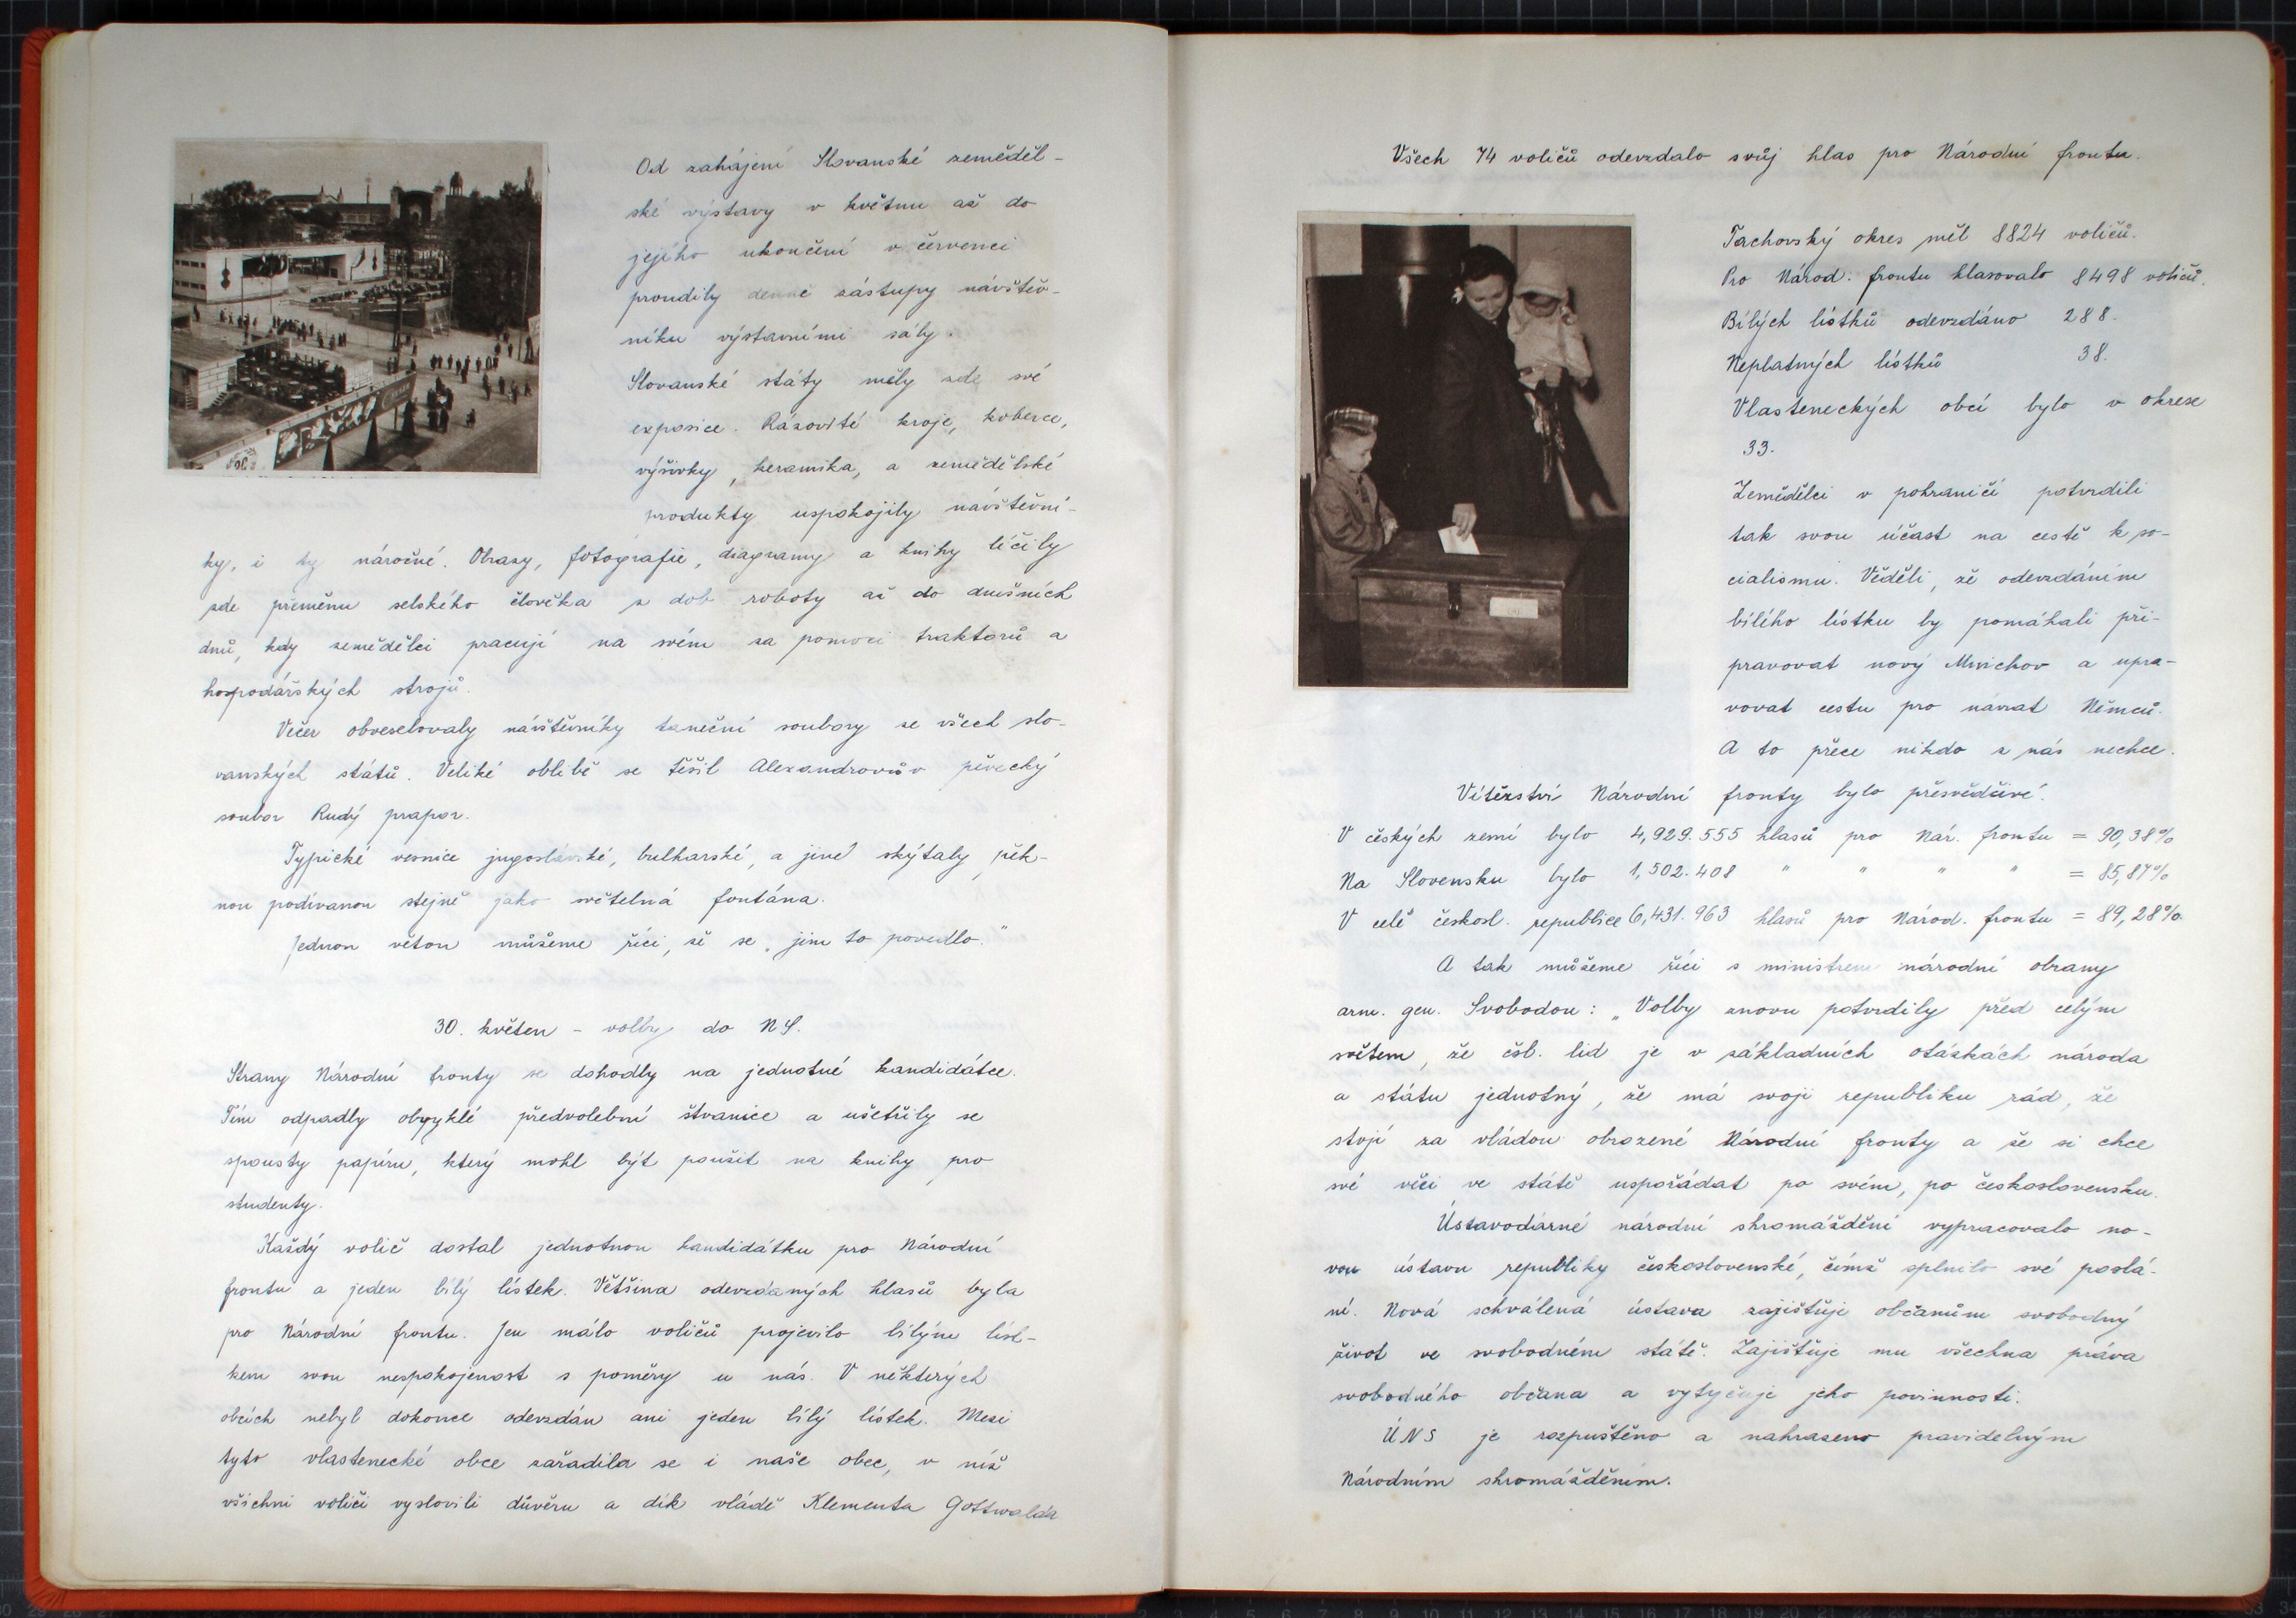 Od zahájení Slovanské zeměděl-
ské výstavy v květnu až do
jejího ukončení v červenci
proudily denně zástupy návštěv-
níku výstavními sály.
Slovanské státy měly zde své
exposice. Rázovité kroje, koberce,
výšivky, keramika, a zemědělské
produkty uspokojily návštěvní-
ky, i ty náročné. Obrazy, fotografie, diagramy a knihy líčily
zde přeměnu selského člověka z dob roboty až do dnešních
dnů, kdy zemědělci pracují na svém za pomoci traktorů a
hospodářských strojů.
Večer obveselovaly návštěvníky taneční soubory ze všech slo-
vanských států. Veliké oblibě se těšil Alexandrovův pěvecký
soubor Rudý prapor.
Typické vesnice jugoslávské, bulharské, a jiné skýtaly pěk-
nou podívanou stejně jako světelná fontána.
Jednou větou můžeme říci, že se „jim to povedlo."
30. květen - volby do NS.
Strany Národní fronty se dohodly na jednotné kandidátce.
Tím odpadly obvyklé předvolební štvanice a ušetřily se
spousty papíru, který mohl být použit na knihy pro
studenty.
Každý volič dostal jednotnou kandidátku pro Národní
frontu a jeden bílý lístek. Většina odevzdaných hlasů byla
pro Národní frontu. Jen málo voličů projevilo bílým líst-
kem svou nespokojenost s poměry u nás. V některých
obcích nebyl dokonce odevzdán ani jeden bílý lístek. Mezi
tyto vlastenecké obce zařadila se i naše obec, v níž
všichni voliči vyslovili důvěru a dík vládě Klementa Gottwalda
Všech 74 voličů odevzdalo svůj hlas pro Národní frontu.
Tachovský okres měl 8824 voličů.
Pro Národ. frontu hlasovalo 8498 voličů.
Bílých lístků odevzdáno 288.
Neplatných lístků 38.
Vlasteneckých obcí bylo v okrese
33.
Zemědělci v pohraničí potvrdili
tak svou účast na cestě k so-
cialismu. Věděli, že odevzdáním
bílého lístku by pomáhali při-
pravovat nový Mnichov a upra-
vovat cestu pro návrat Němců.
A to přece nikdo z nás nechce.
Vítězství Národní fronty bylo přesvědčivé.
V českých zemí bylo 4,929.555 hlasů pro Nár. frontu = 90,38%
Na Slovensku bylo 1,502.408 " " " " = 85,87%
V celé českosl. republice 6,431.963 hlasů pro Národ. frontu = 89,28%
A tak můžeme říci s ministrem národní obrany
arm. gen. Svobodou: „Volby znovu potvrdily před celým
světem, že čsl. lid je v základních otázkách národa
a státu jednotný, že má svoji republiku rád, že
stojí za vládou obrozené Národní fronty a že si chce
své věci ve státě uspořádat po svém, po československu.
Ústavodárné národní shromáždění vypracovalo no-
vou ústavu republiky československé, čímž splnilo své poslá-
ní. Nová schválená ústava zajišťuje občanům svobodný
život ve svobodném státě. Zajišťuje mu všechna práva
svobodného občana a vytyčuje jeho povinnosti.
ÚNS je rozpuštěno a nahrazeno pravidelným
Národním shromážděním.